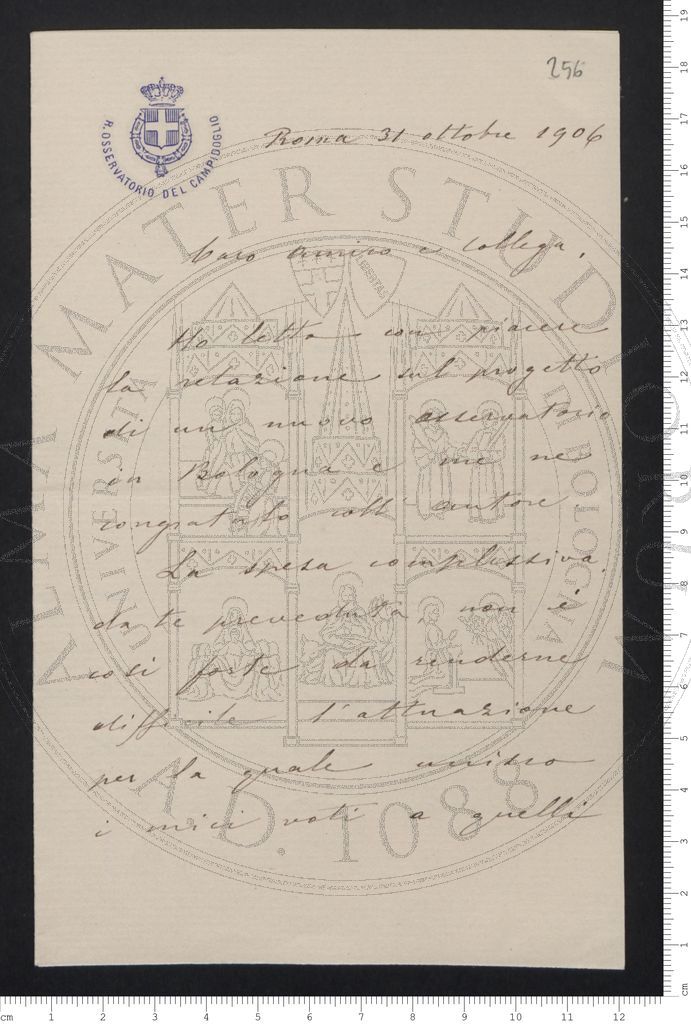 256
R. OSSERVATORIO DEL CAMPIDOGLIO
Roma 31 ottobre 1906
Caro amico e Collega,
Ho letto con piacere
la relazione sul progetto
di un nuovo osservatorio
in Bologna e me ne
congratulo coll' autore
La spesa complessiva
da te preveduta non è
così forte da renderne
difficile l'attuazione
per la quale unisco
i miei voti a quelli
ALMA MATER STUDIORUM
UNIVERSITÀ DI BOLOGNA
LIBERTAS
A.D. 1088
cm 1 2 3 4 5 6 7 8 9 10 11 12
cm 1 2 3 4 5 6 7 8 9 10 11 12 13 14 15 16 17 18 19